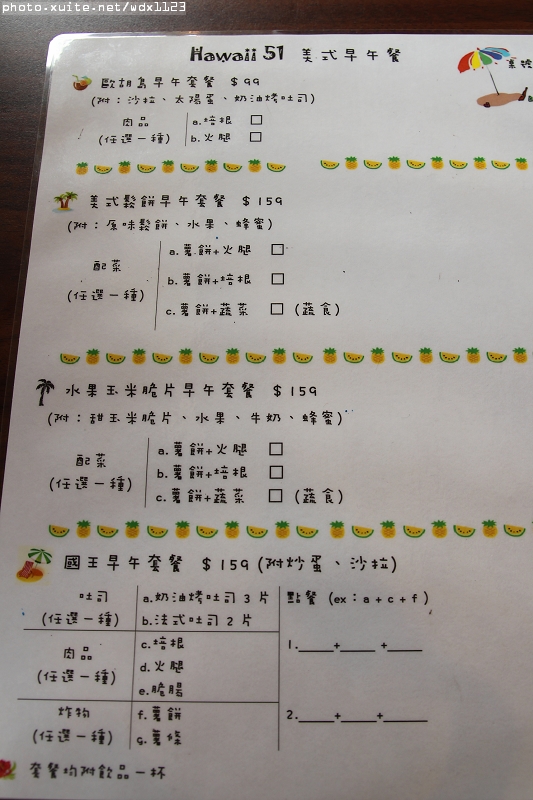 photo.xuite.net/wdx1123
Hawaii 51 美式早午餐
桌號
歐胡島早午套餐 $99
(附：沙拉、太陽蛋、奶油烤吐司)
肉品
(任選一種)
a.培根 □
b.火腿 □
美式鬆餅早午套餐 $159
(附：原味鬆餅、水果、蜂蜜)
配菜
(任選一種)
a.薯餅+火腿 □
b.薯餅+培根 □
c.薯餅+蔬菜 □ (蔬食)
水果玉米脆片早午套餐 $159
(附：甜玉米脆片、水果、牛奶、蜂蜜)
配菜
(任選一種)
a.薯餅+火腿 □
b.薯餅+培根 □
c.薯餅+蔬菜 □ (蔬食)
國王早午套餐 $159 (附炒蛋、沙拉)
吐司
(任選一種)
a.奶油烤吐司 3 片
b.法式吐司 2 片
肉品
(任選一種)
c.培根
d.火腿
e.脆腸
炸物
(任選一種)
f.薯餅
g.薯條
點餐 (ex：a + c + f )
1.____+____+____
2.____+____+____
套餐均附飲品一杯